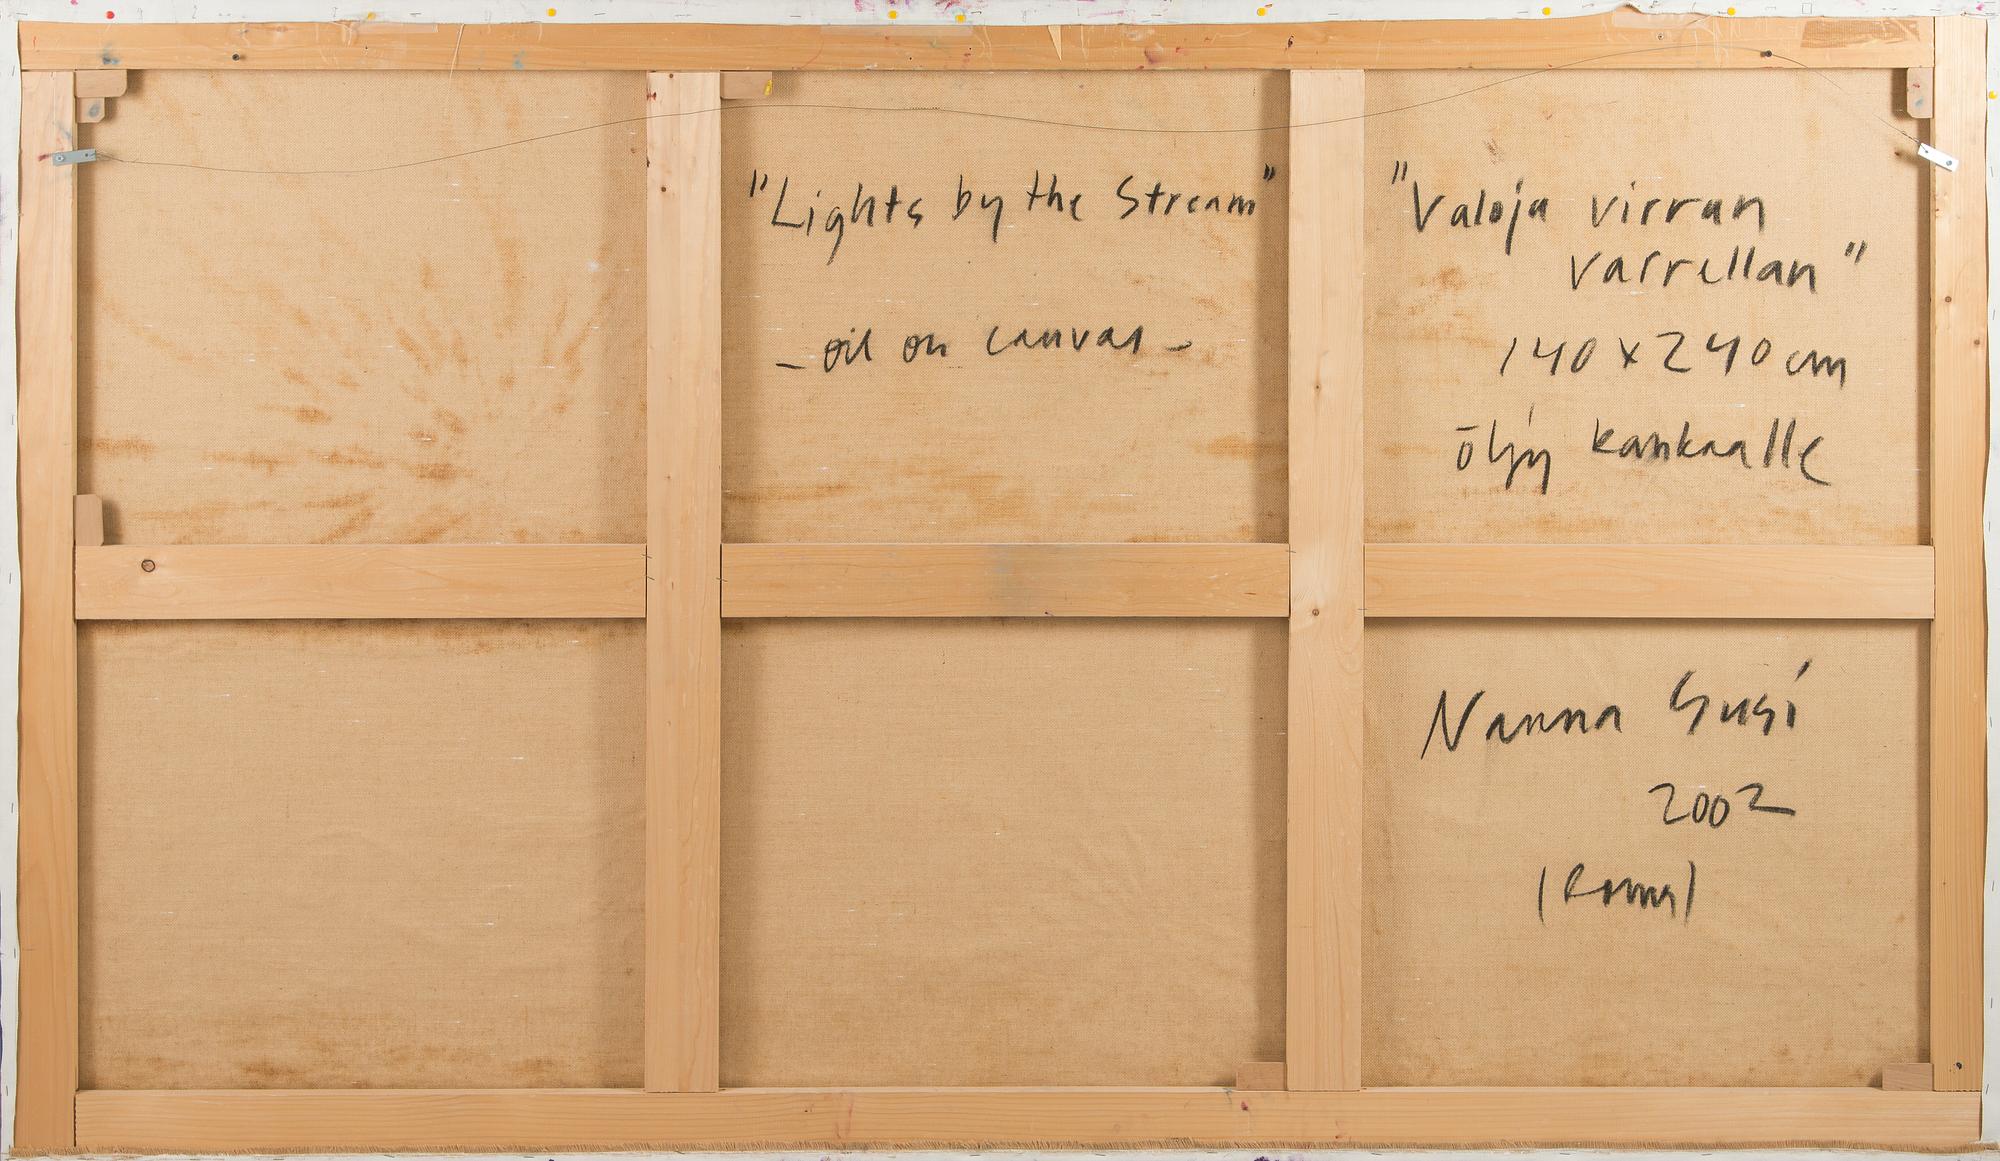 "Lights by the Stream"
- oil on canvas -
"Valoja virran
varrellan"
140 x 240 cm
öljy kankaalle
Nanna Susi
2002
(Roma)